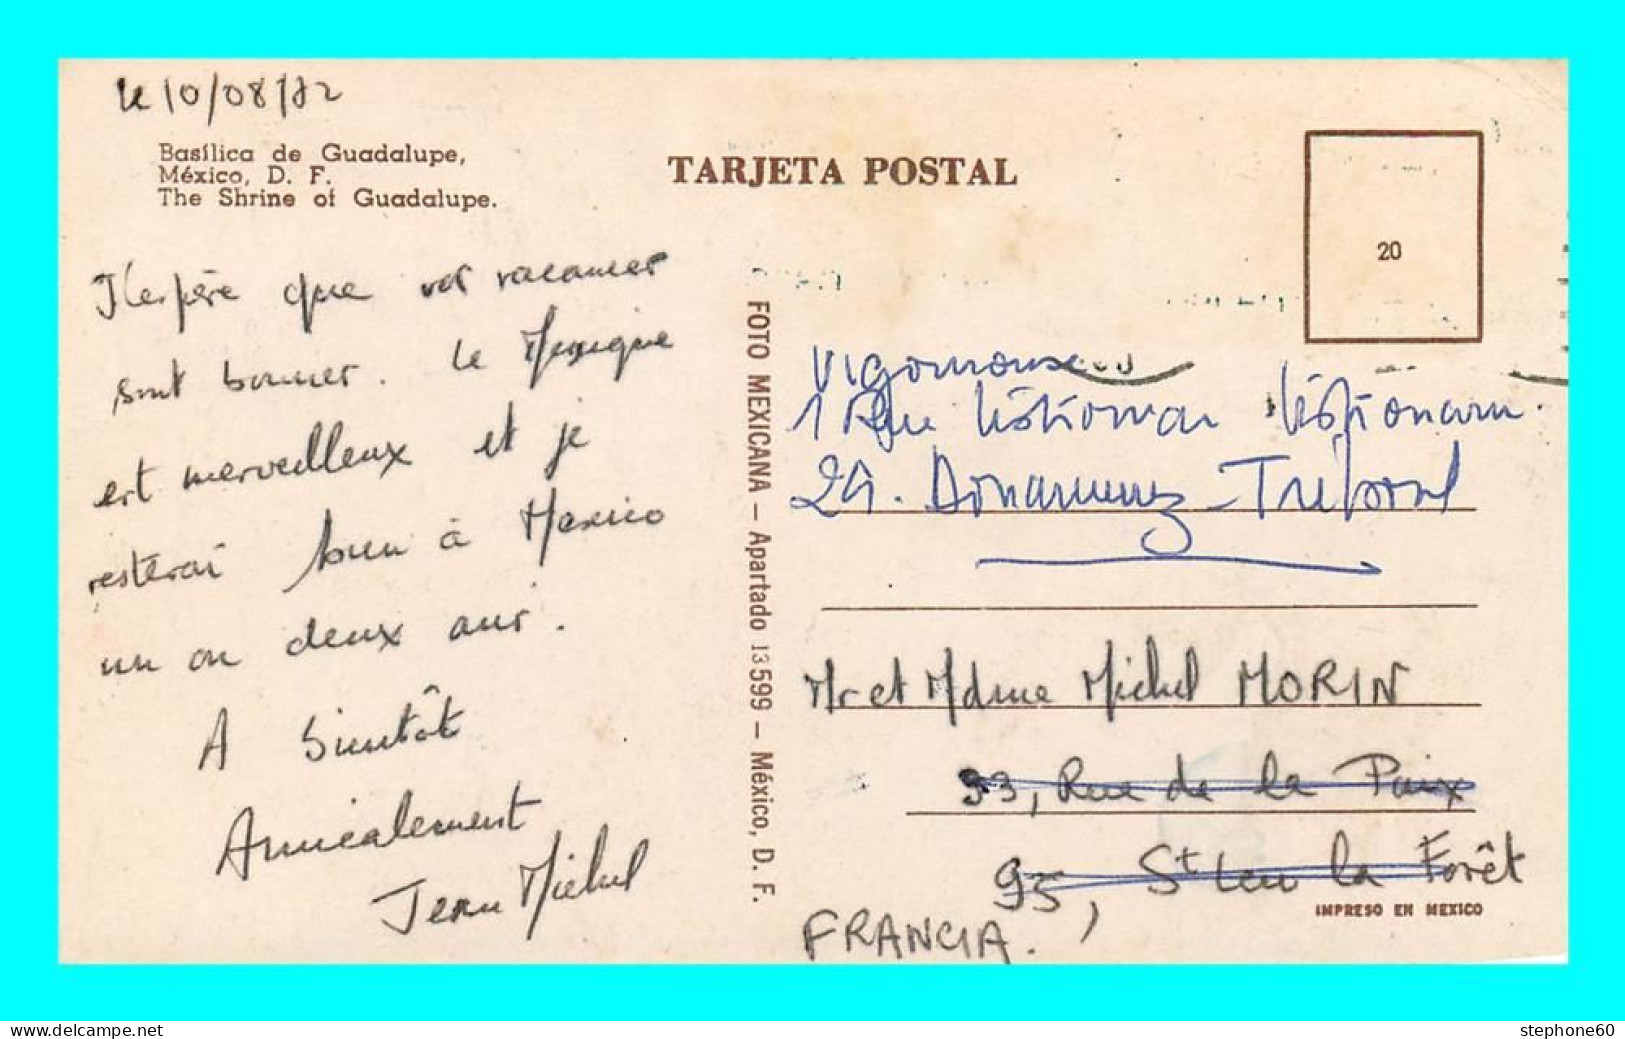 le 10/08/82
Basílica de Guadalupe,
México, D. F.
The Shrine of Guadalupe.
TARJETA POSTAL
20
J'espère que vos vacances
sont bonnes. Le Mexique
est merveilleux et je
resterai bien à Mexico
un ou deux ans.
A bientôt
Amicalement
Jean Michel
FOTO MEXICANA – Apartado 13599 – México, D. F.
1 Rue
29. Douarnenez - Tréboul
Mr et Mdme Michel MORIN
93, Rue de la Paix
95, St Leu la Forêt
FRANCIA.
IMPRESO EN MEXICO
A911 / 639
stephone60